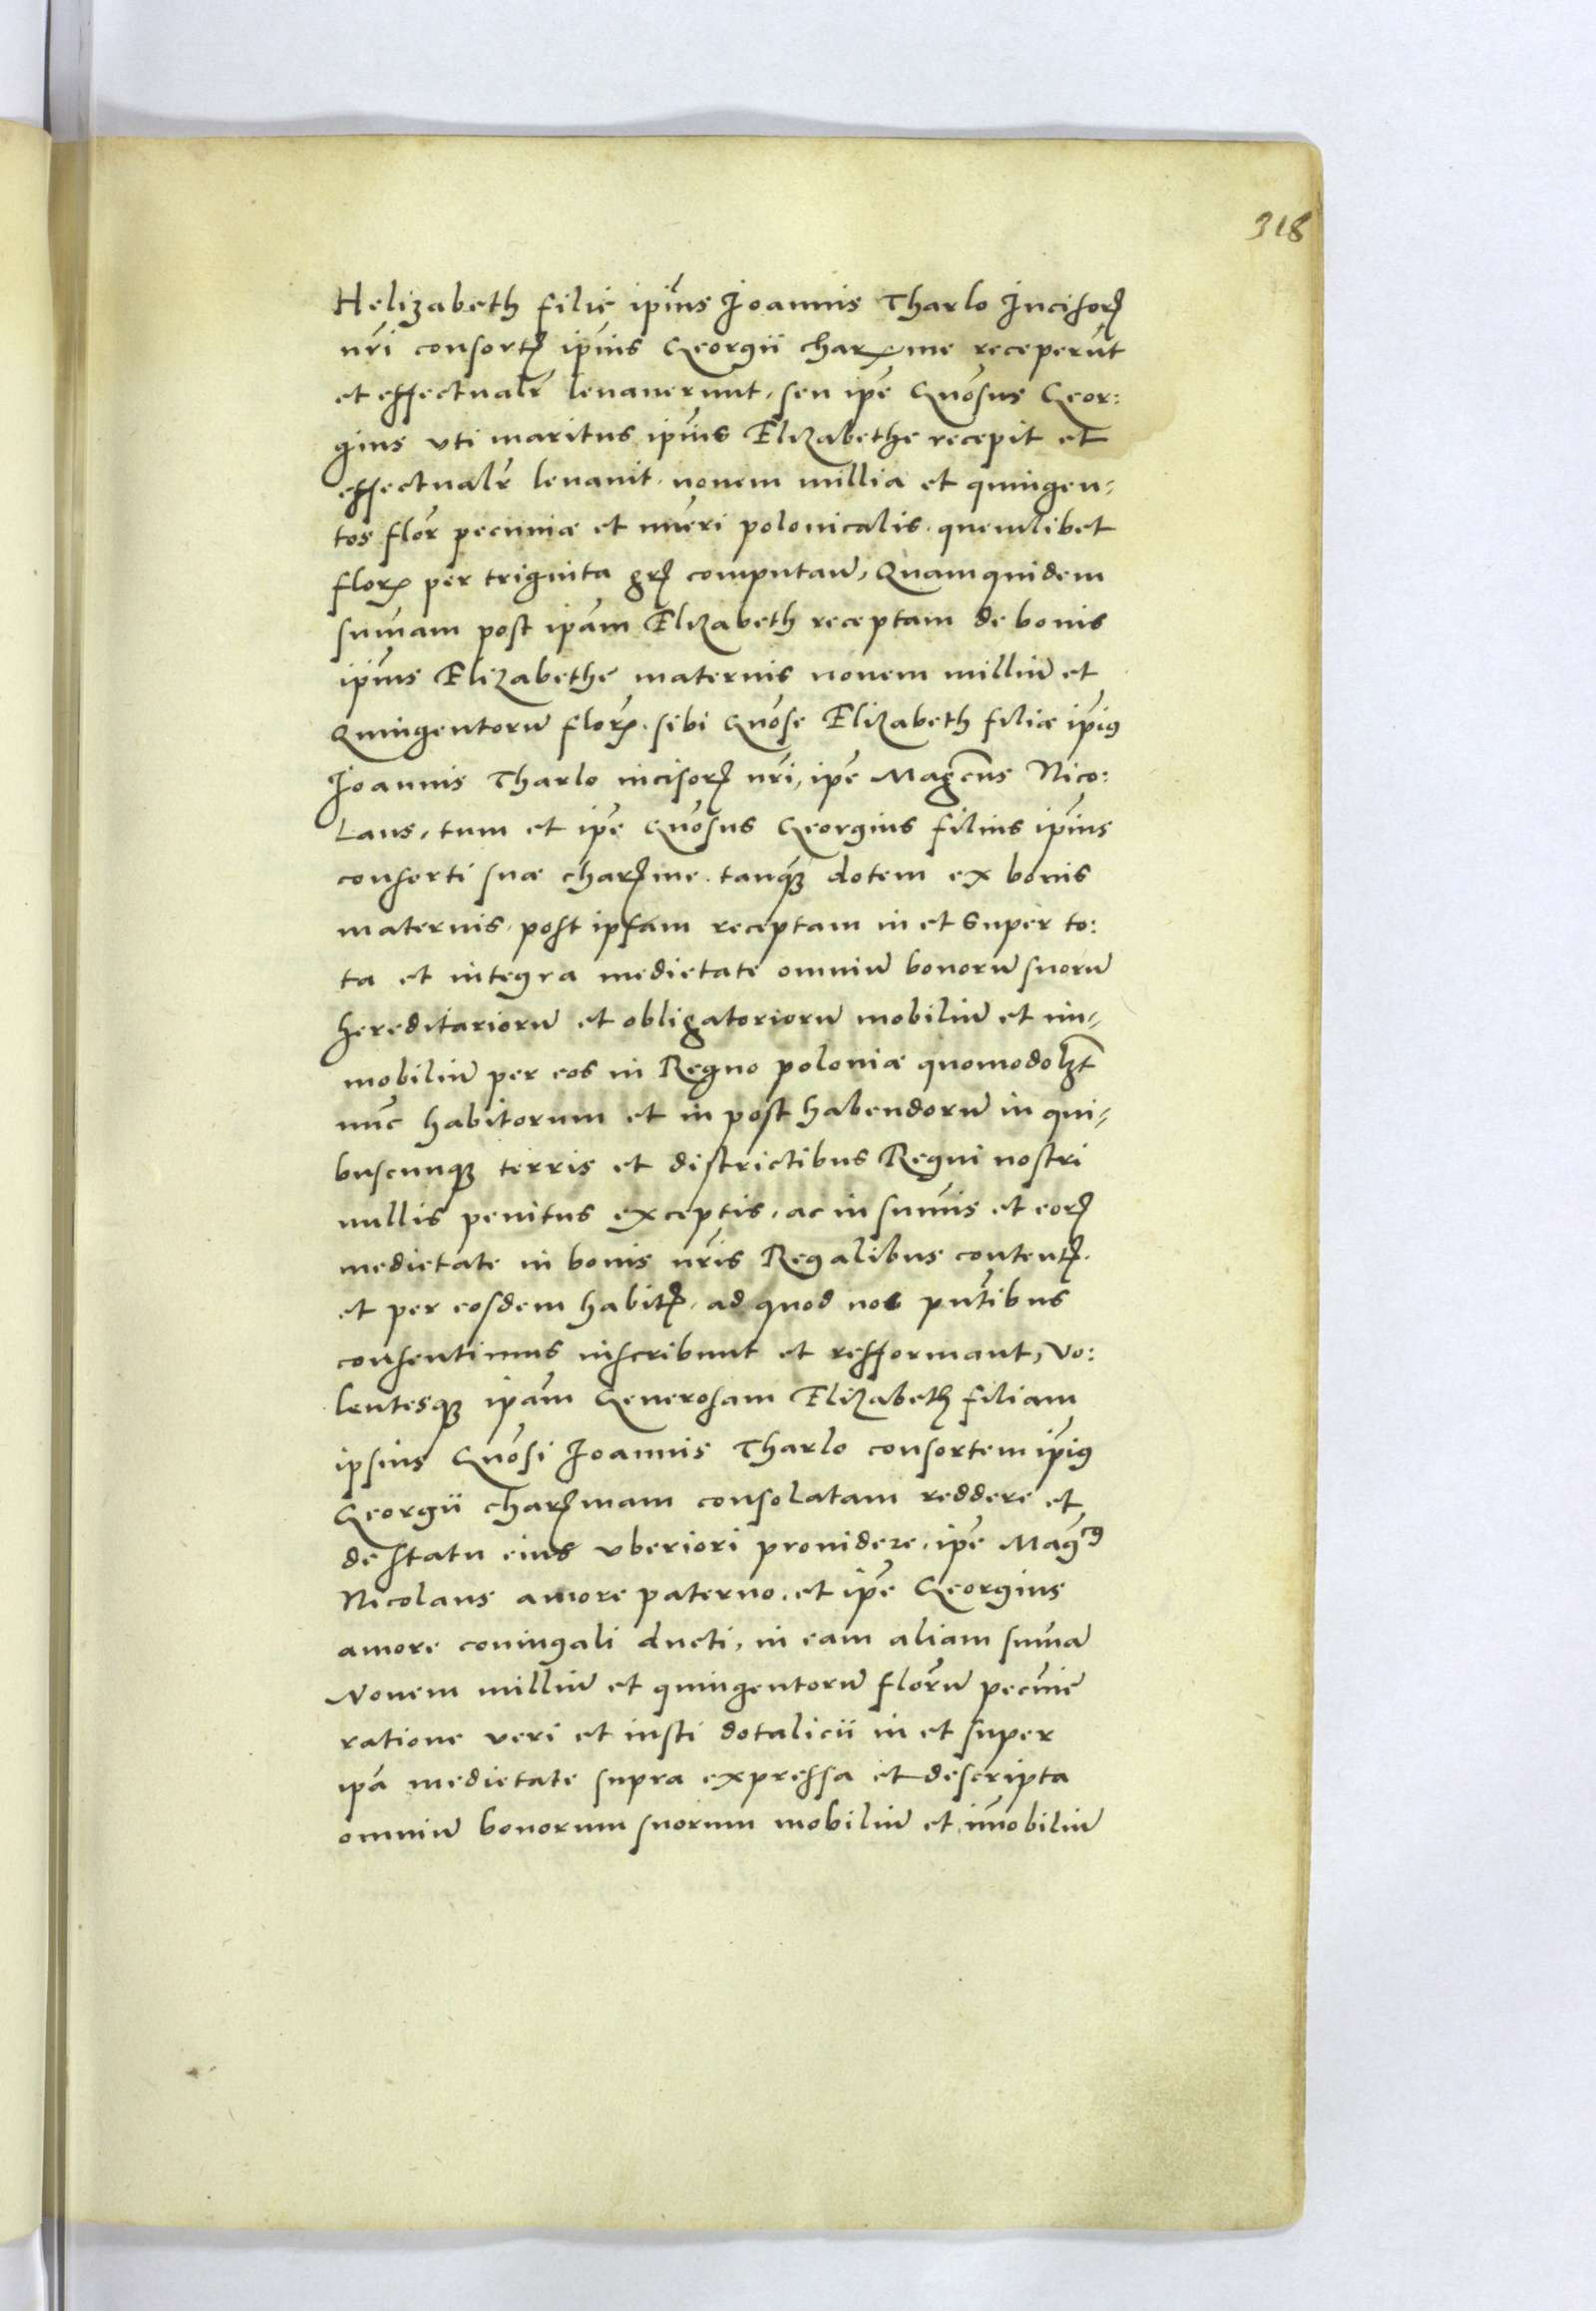 318
Helizabeth filię ip̄ius Joannis Tharlo Incisorꝭ
nr̄i consortꝭ ip̄ius Georgii charꝝme receperūt
et effectualr̄ levaverunt, seu ip̄e Gnōsus Geor:
gius uti maritus ip̄ius Elizabethe recepit et
effectualr̄ levavit, novem millia et quingen-
tos flor̄ pecuniæ et nūeri polonicalis, quemlibet
florꝝ per triginta grꝭ computan̄, Quamquidem
sum̄am post ip̄am Elizabeth receptam de bonis
ip̄ius Elizabethę maternis novem milliū et
Quingentorū florꝝ. sibi Gnōse Elizabeth filiæ ip̄iꝰ
Joannis Tharlo incisorꝭ nr̄i, ip̄e Magc̄us Nico:
laus, tum et ip̄e Gnōsus Georgius filius ip̄ius
consorti suæ charꝭme. tanqꝫ dotem ex bonis
maternis, post ipsam receptam in et super to:
ta et integra medietate omniū bonorū suorū
hereditariorū et obligatoriorū mobiliū et im-
mobiliū per eos in Regno poloniæ quomodolꝫt
nūc habitorum et in post habendorū in qui-
buscunqꝫ terris et districtibus Regni nostri
nullis penitus exceptis, ac in sum̄is et eorꝭ
medietate in bonis nr̄is Regalibus contentꝭ.
et per eosdem habitꝭ, ad quod nos pn̄tibus
consentimus inscribunt et refformant, Vo:
lentesqꝫ ip̄am Generosam Elizabeth filiam
ipsius Gnōsi Joannis Tharlo consortem ip̄iꝰ
Georgii charꝭmam consolatam reddere et
de statu eius uberiori providere, ip̄e Maḡcꝰ
Nicolaus amore paterno, et ip̄e Georgius
amore coniugali ducti, in eam aliam sum̄ā
Novem milliū et quingentorū florū pecunię
ratione veri et iusti dotalicii in et super
ip̄a medietate supra expressa et descripta
omniū bonorum suorum mobiliū et im̄obiliū